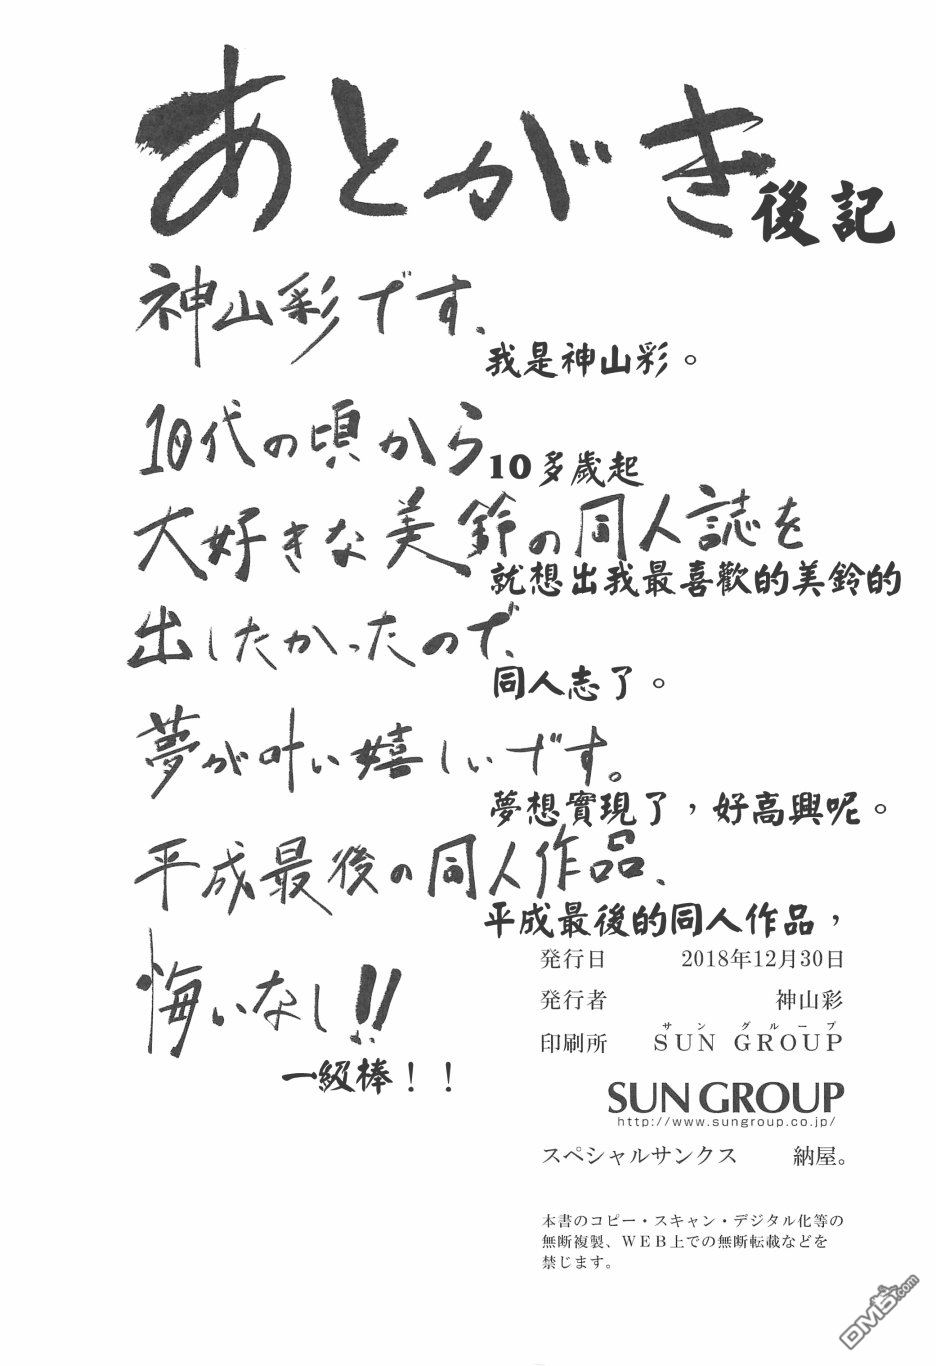 あとがき
後記
神山彩です、
我是神山彩。
10代の頃から
10多歲起
大好きな美鈴の同人誌を
就想出我最喜歡的美鈴的
出したかったので、
同人志了。
夢が叶い嬉しいです。
夢想實現了，好高興呢。
平成最後の同人作品、
平成最後的同人作品，
悔いなし!!
一級棒！！
発行日 2018年12月30日
発行者 神山彩
サングループ
印刷所 SUN GROUP
SUN GROUP
http://www.sungroup.co.jp/
スペシャルサンクス 納屋。
本書のコピー・スキャン・デジタル化等の
無断複製、WEB上での無断転載などを
禁じます。
DM5.com